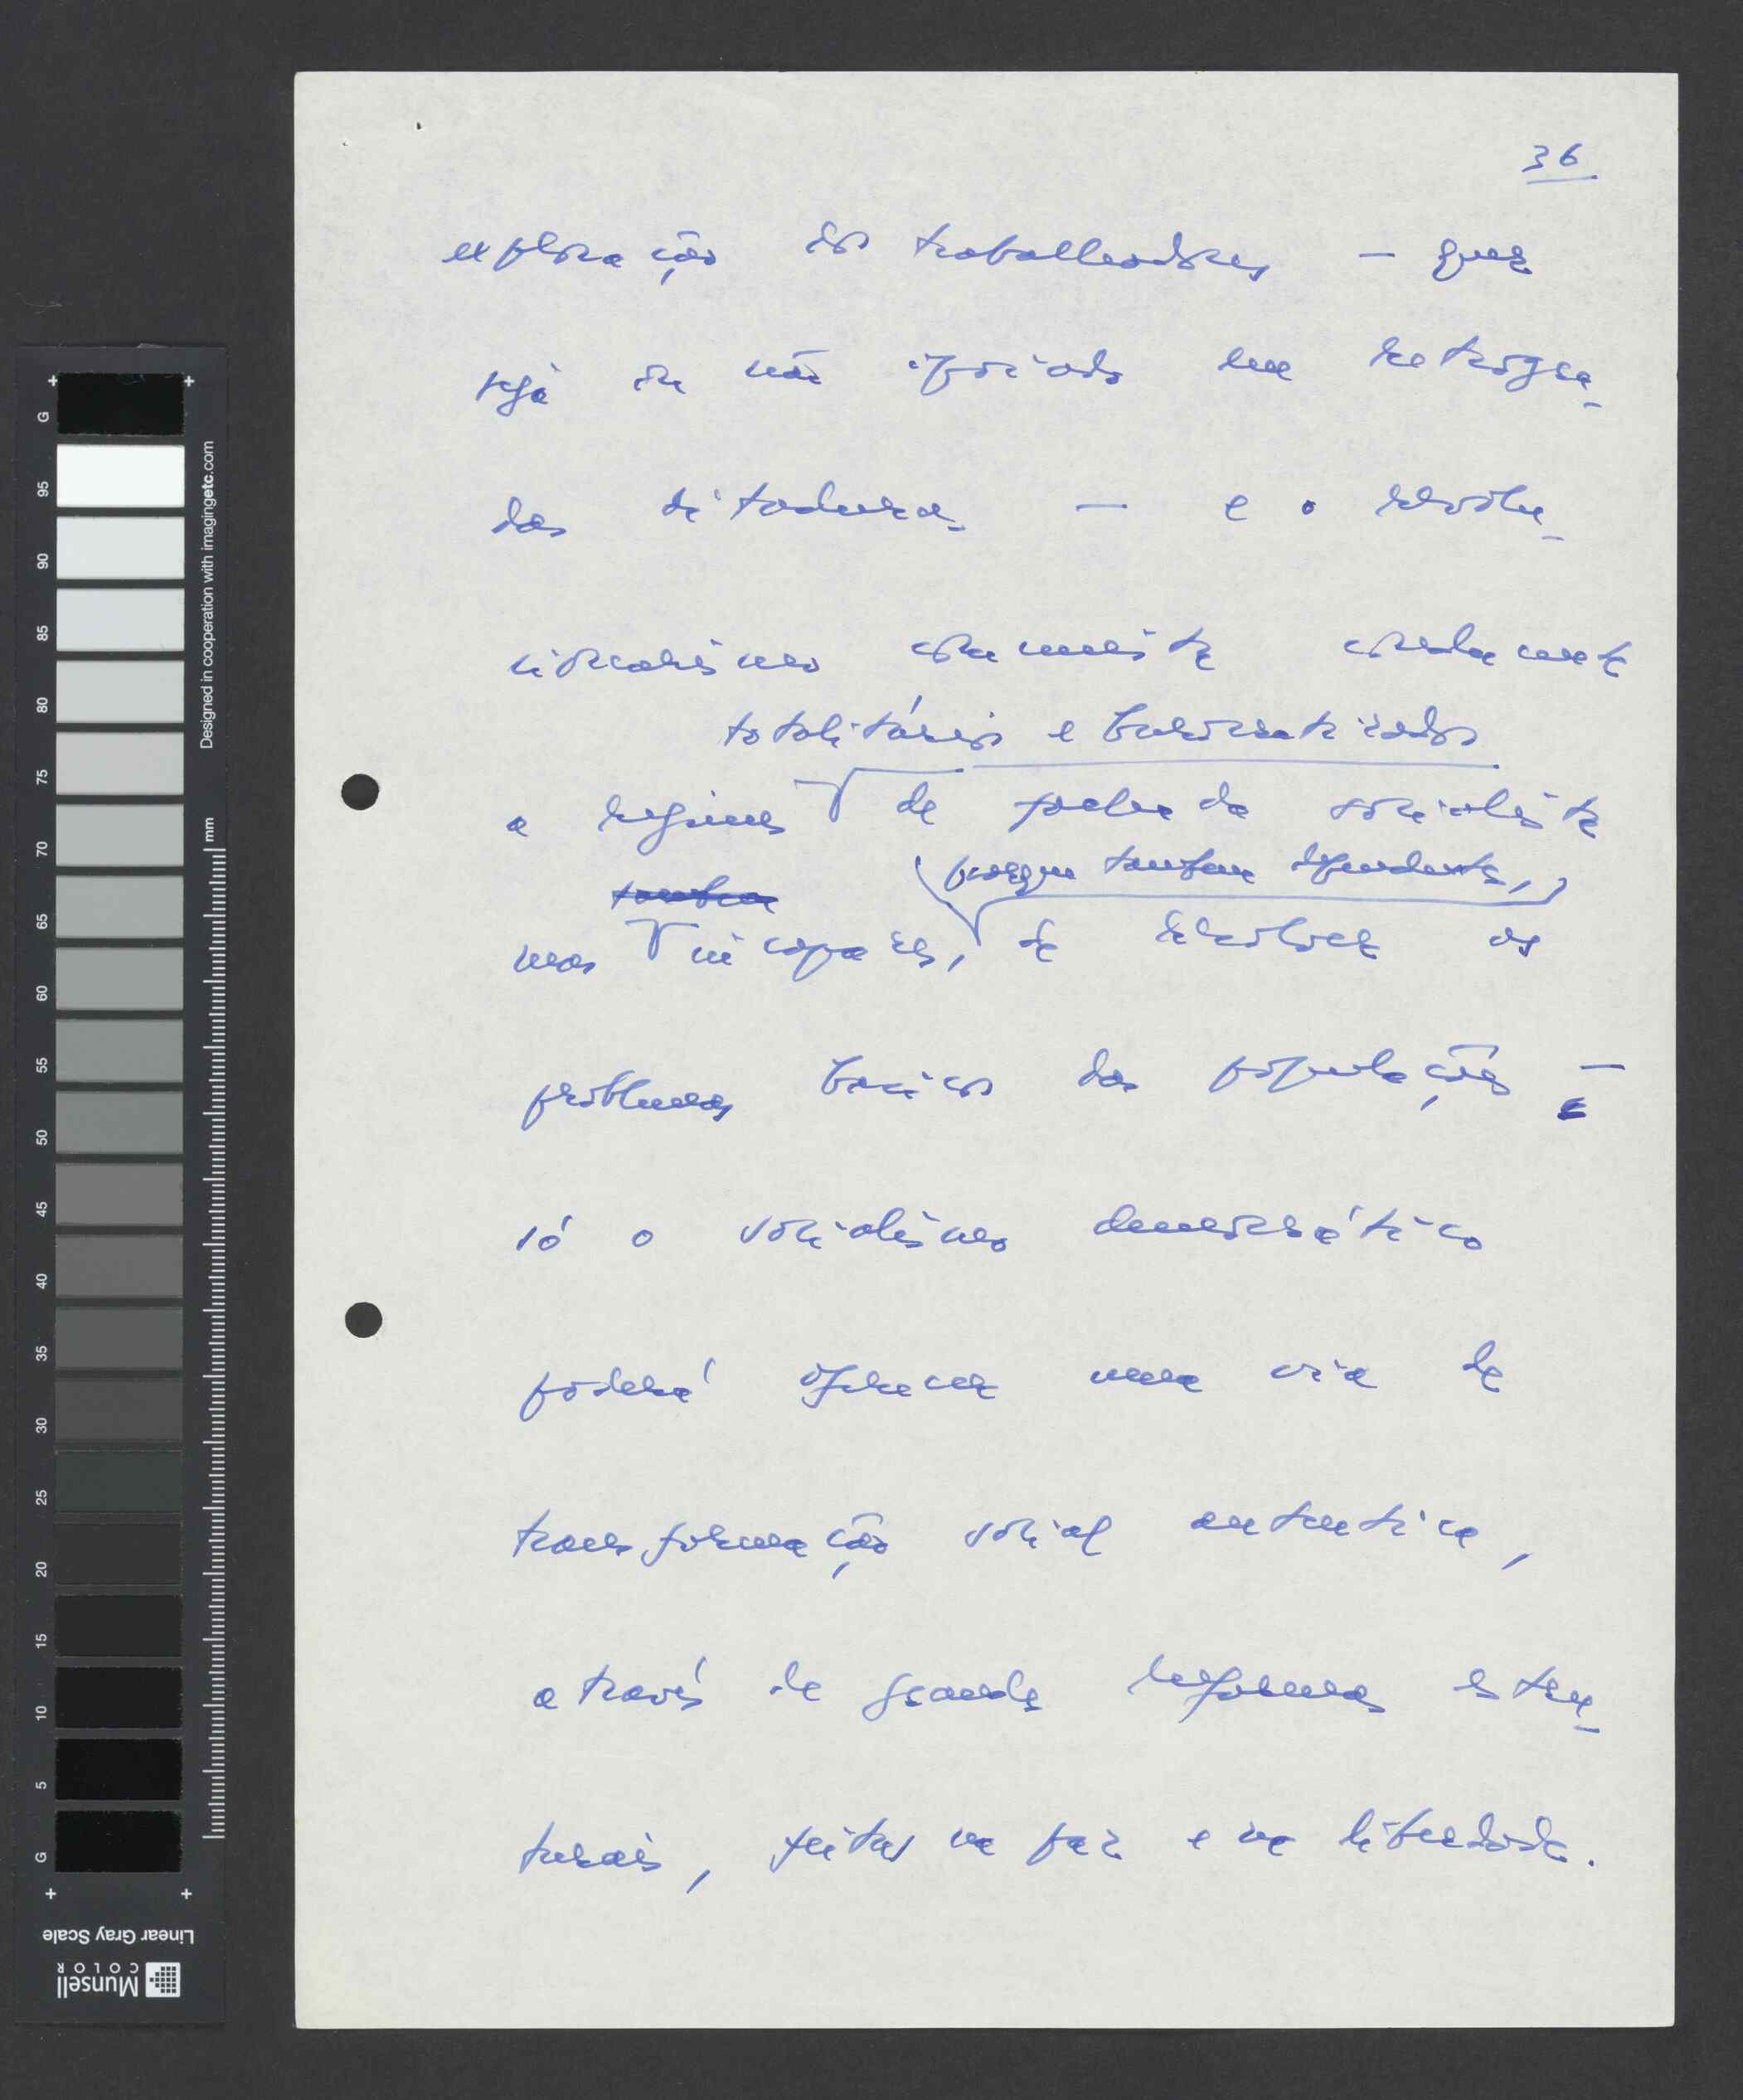 36
exploração dos trabalhadores — quer
seja ou não apoiado em retrógra-
das ditaduras — e o revolu-
cionarismo comunista conducente
totalitários e burocratizados
a regimes de fachada socialista
porque também dependentes,
mas incapazes, de resolver os
problemas básicos das populações —
só o socialismo democrático
poderá oferecer uma via de
transformação social autentica,
através de grandes reformas estru-
turais, feitas na paz e na liberdade.
G
95
90
85
80
75
70
65
60
55
50
45
40
35
30
25
20
15
10
5
G
mm
Designed in cooperation with imagingetc.com
Linear Gray Scale
Munsell
COLOR